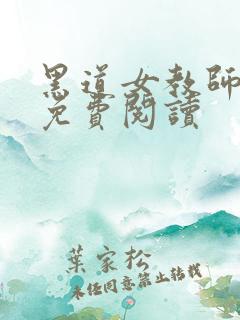 黑道女教師
免費閱讀
葉家松
未经同意禁止转载